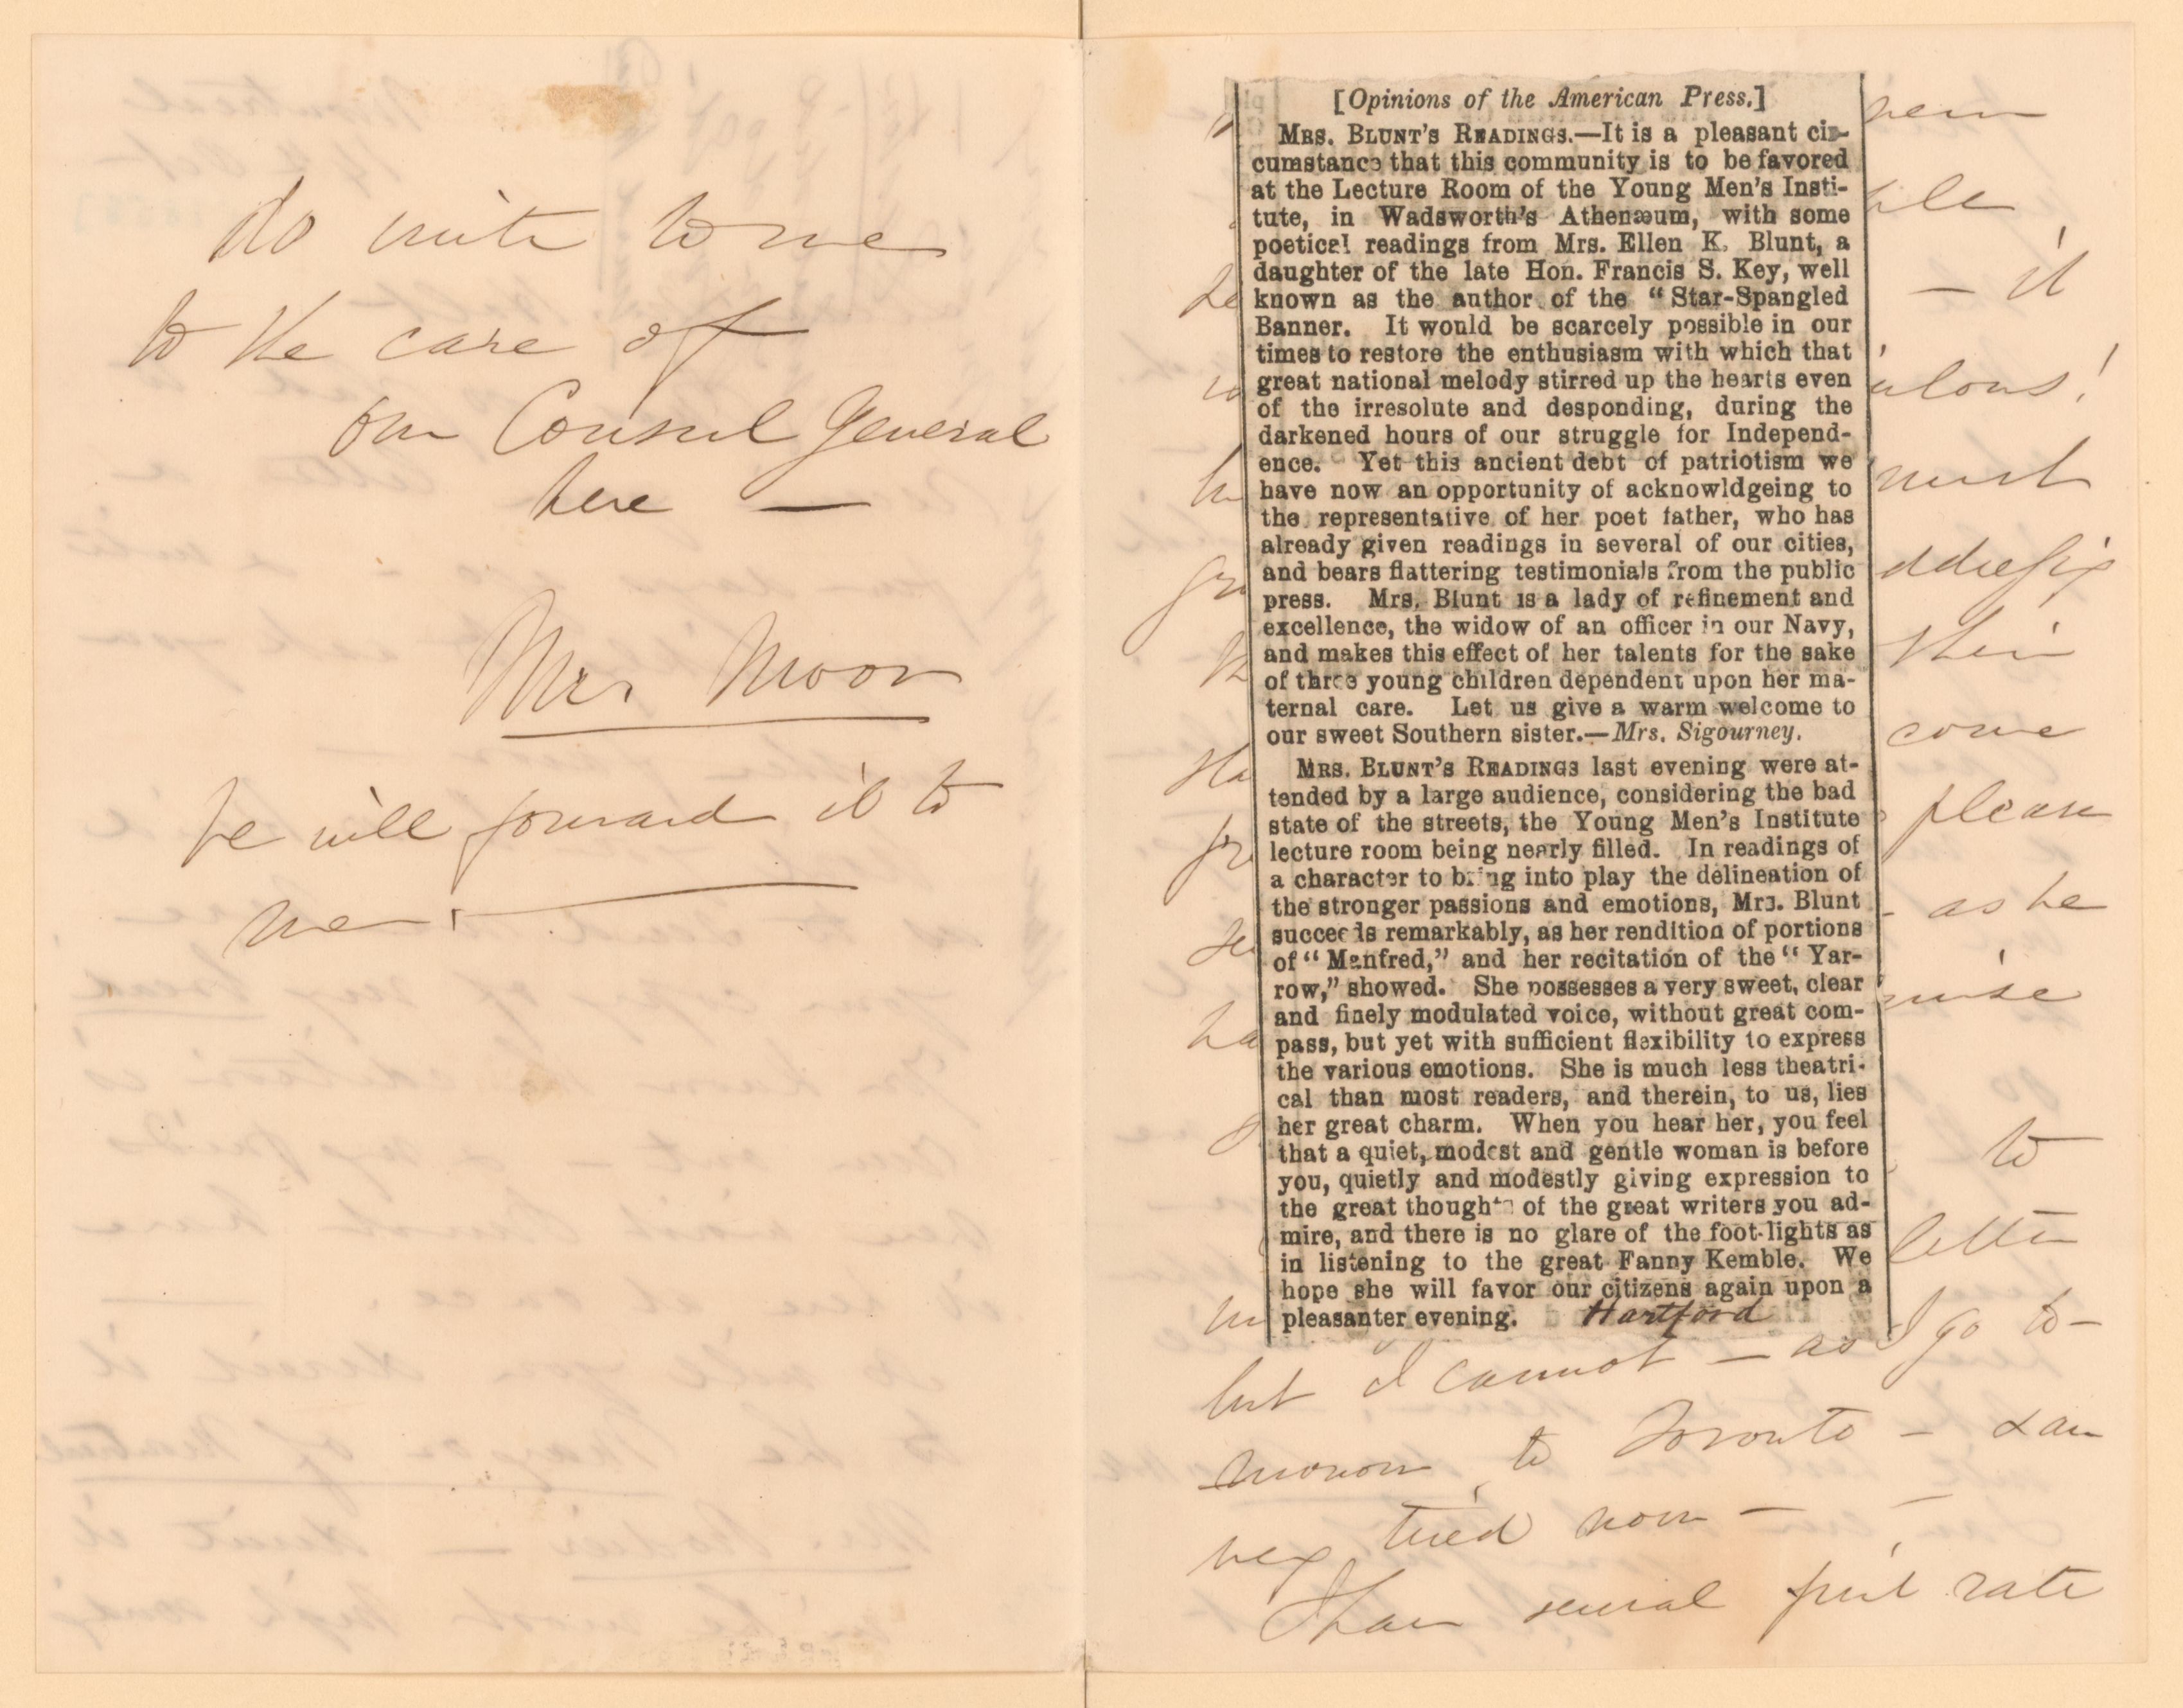 do write to me
to the care of
our Consul General
here —
Mr Moor
he will forward it to
me.
[Opinions of the American Press.]
MRS. BLUNT'S READINGS.—It is a pleasant cir-
cumstance that this community is to be favored
at the Lecture Room of the Young Men's Insti-
tute, in Wadsworth's Athenæum, with some
poetical readings from Mrs. Ellen K. Blunt, a
daughter of the late Hon. Francis S. Key, well
known as the author of the "Star-Spangled
Banner. It would be scarcely possible in our
times to restore the enthusiasm with which that
great national melody stirred up the hearts even
of the irresolute and desponding, during the
darkened hours of our struggle for Independ-
ence. Yet this ancient debt of patriotism we
have now an opportunity of acknowldgeing to
the representative of her poet father, who has
already given readings in several of our cities,
and bears flattering testimonials from the public
press. Mrs. Blunt is a lady of refinement and
excellence, the widow of an officer in our Navy,
and makes this effect of her talents for the sake
of three young children dependent upon her ma-
ternal care. Let us give a warm welcome to
our sweet Southern sister.—Mrs. Sigourney.
MRS. BLUNT'S READINGS last evening were at-
tended by a large audience, considering the bad
state of the streets, the Young Men's Institute
lecture room being nearly filled. In readings of
a character to bring into play the delineation of
the stronger passions and emotions, Mrs. Blunt
succeeds remarkably, as her rendition of portions
of "Manfred," and her recitation of the "Yar-
row," showed. She possesses a very sweet, clear
and finely modulated voice, without great com-
pass, but yet with sufficient flexibility to express
the various emotions. She is much less theatri-
cal than most readers, and therein, to us, lies
her great charm. When you hear her, you feel
that a quiet, modest and gentle woman is before
you, quietly and modestly giving expression to
the great thoughts of the great writers you ad-
mire, and there is no glare of the foot-lights as
in listening to the great Fanny Kemble. We
hope she will favor our citizens again upon a
pleasanter evening. Hartford
— it
must
their
come
please
as he
to
letter
I go to-
but I cannot — as
morrow to Toronto — & am
very tired now —
I have several first rate